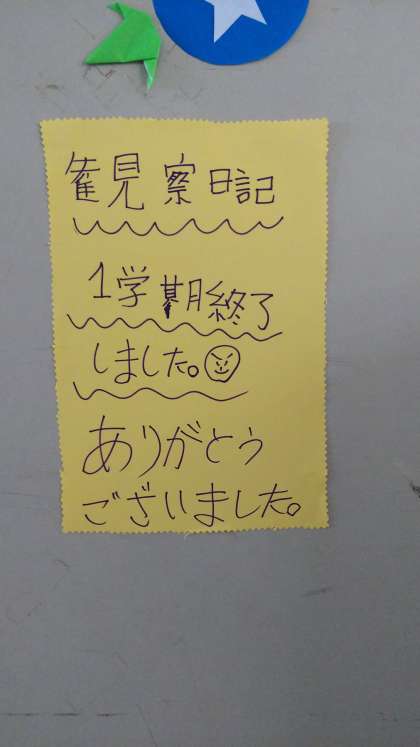 観察日記
1学期終了
しました。
ありがとう
ございました。